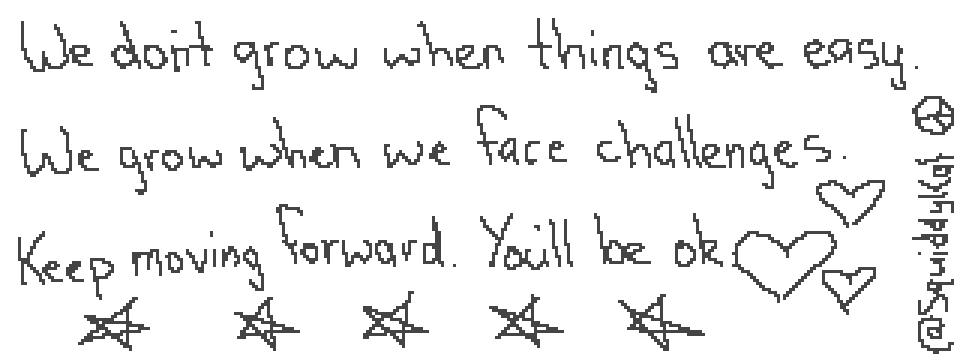 We don't grow when things are easy.
We grow when we face challenges.
Keep moving forward. You'll be ok